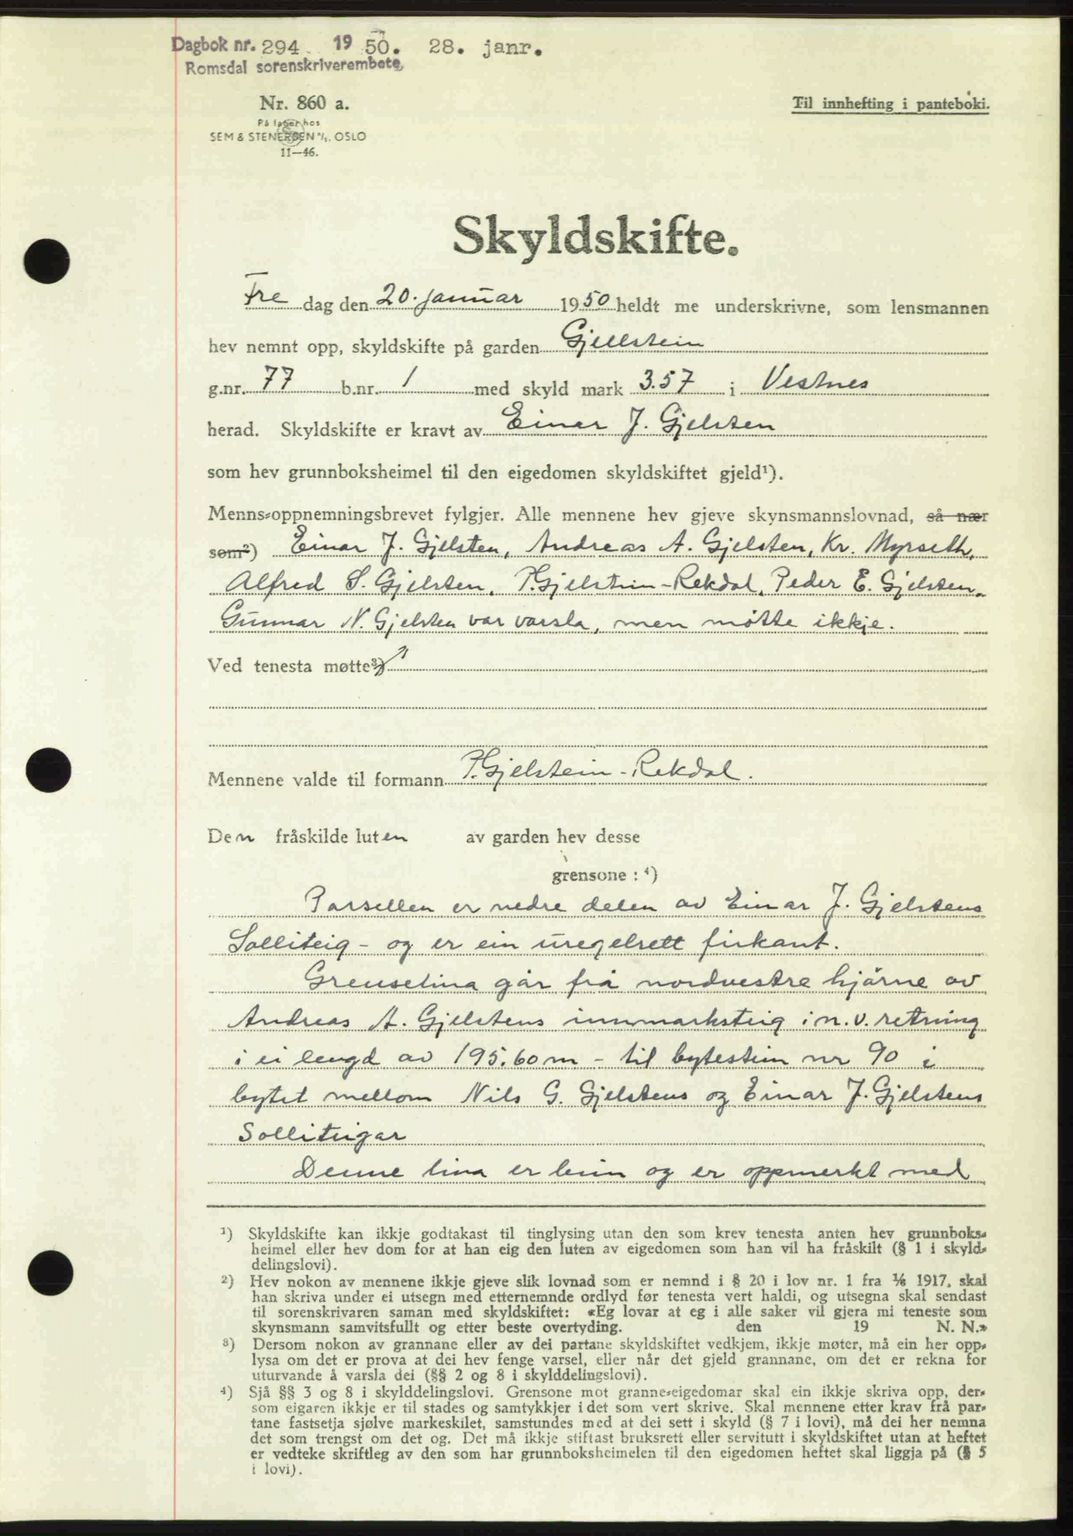 Dagbok nr. 294. 1950. 28. janr.
Romsdal sorenskriverembete
Nr. 860 a.
Til innhefting i panteboki.
På lager hos
SEM & STENERSEN A/S. OSLO
11—46.
Skyldskifte.
Fre dag den 20. januar 1950 heldt me underskrivne, som lensmannen
hev nemnt opp, skyldskifte på garden Gjellstein
g.nr. 77 b.nr. 1 med skyld mark 3.57 i Vestnes
herad. Skyldskifte er kravt av Einar J. Gjelsten
som hev grunnboksheimel til den eigedomen skyldskiftet gjeld¹).
Menns-oppnemningsbrevet fylgjer. Alle mennene hev gjeve skynsmannslovnad, så nær
som²) Einar J. Gjelsten, Andreas A. Gjelsten, Kr. Myrseth,
Alfred S. Gjelsten, P. Gjelstein-Rekdal, Peder E. Gjelsten,
Gunnar N. Gjelsten var varsla, men møtte ikkje.
Ved tenesta møtte³)
Mennene valde til formann P. Gjelstein-Rekdal.
Den fråskilde luten av garden hev desse
grensone : ⁴)
Parsellen er nedre delen av Einar J. Gjelstens
Solliteig - og er ein uregelrett firkant.
Grenselina går frå nordvestre hjørne av
Andreas A. Gjelstens innmarksteig i n.v. retning
i ei lengd av 195.60 m - til bytestein nr 90 i
bytet mellom Nils G. Gjelstens og Einar J. Gjelstens
Solliteigar
Denne lina er bein og er oppmerkt med
¹) Skyldskifte kan ikkje godtakast til tinglysing utan den som krev tenesta anten hev grunnboks-
heimel eller hev dom for at han eig den luten av eigedomen som han vil ha fråskilt (§ 1 i skyld-
delingslovi).
²) Hev nokon av mennene ikkje gjeve slik lovnad som er nemnd i § 20 i lov nr. 1 fra 1/6 1917, skal
han skriva under ei utsegn med etternemnde ordlyd før tenesta vert haldi, og utsegna skal sendast
til sorenskrivaren saman med skyldskiftet: «Eg lovar at eg i alle saker vil gjera mi teneste som
skynsmann samvitsfullt og etter beste overtyding. den 19 N. N.»
³) Dersom nokon av grannane eller av dei partane skyldskiftet vedkjem, ikkje møter, må ein her opp-
lysa om det er prova at dei hev fenge varsel, eller når det gjeld grannane, om det er rekna for
uturvande å varsla dei (§§ 2 og 8 i skylddelingslovi).
⁴) Sjå §§ 3 og 8 i skylddelingslovi. Grensone mot granne-eigedomar skal ein ikkje skriva opp, der-
som eigaren ikkje er til stades og samtykkjer i det som vert skrive. Skal mennene etter krav frå par-
tane fastsetja sjølve markeskilet, samstundes med at dei sett i skyld (§ 7 i lovi), må dei her nemna
det som trengst om det og. Det må ikkje stiftast bruksrett eller servitutt i skyldskiftet utan at heftet
er vedteke skriftleg av den som har grunnboksheimelen til den eigedomen heftet skal liggja på (§ 5
i lovi).